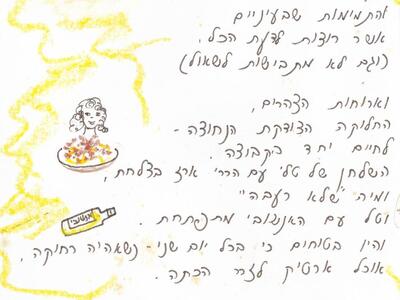 והתמימות שבעיניים
אשר רוצות לדעת הכל,
(וגם לא מתביישות לשאול)
וארוחות הצהרים,
החלוקה הצודקת הנחוצה -
לחיים יחד בקבוצה.
השלחן של טלי עם הררי אורז בצלחת,
ומיה "שלא רעבה"
וטל עם האנטיבי מתפתחת.
והיו בטוחים כי בכל יום שני - נשאהיה רחוקה,
אוכל ארטיק לצד הכתה.